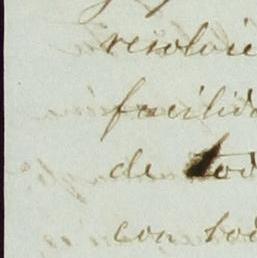 resolvie
facilida
de tod
con tod